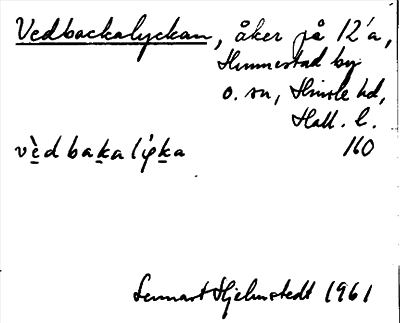 Vedbackalyckan, åker på 12'a,
Hunnestad by
o. sn, Himle hd,
Hall. l.
vèdbakalýka 160
Lennart Hjelmstedt 1961